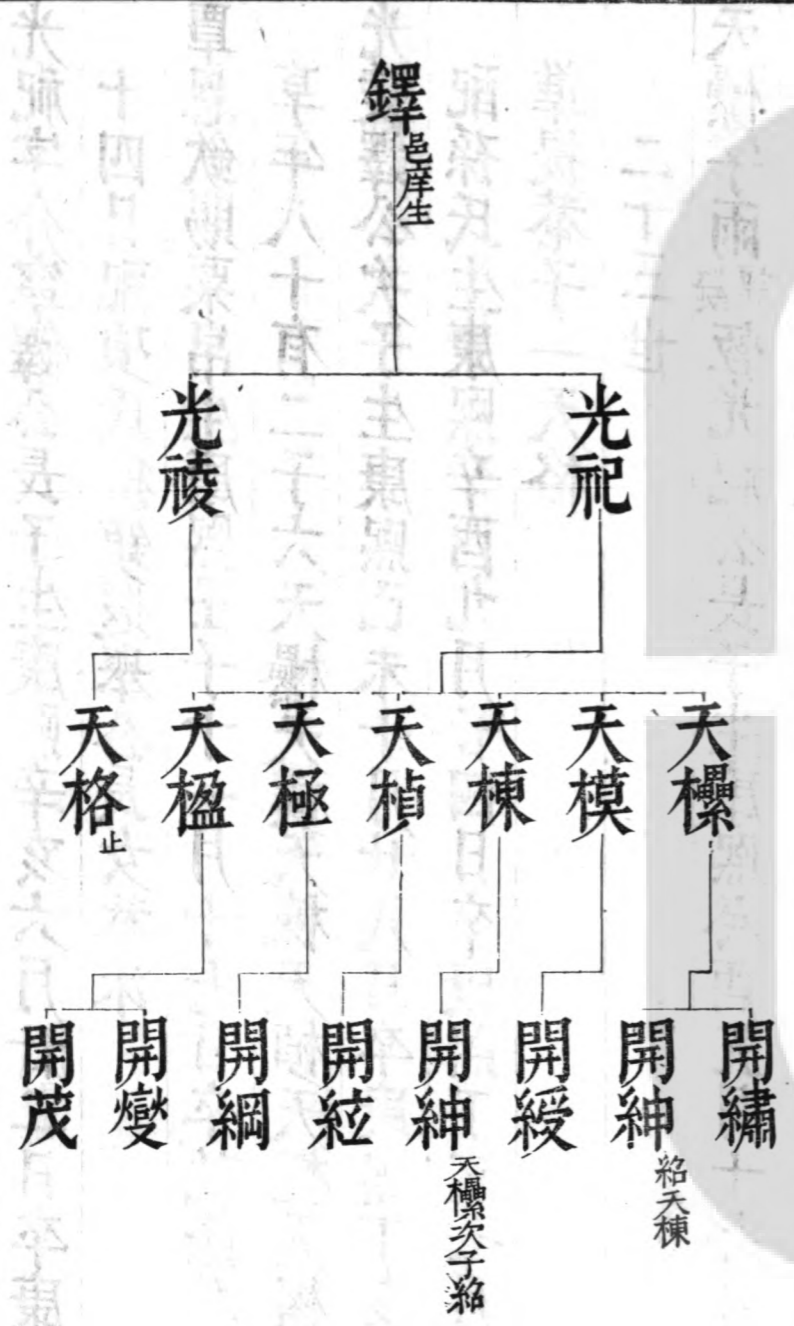 鐸 邑庠生
光祀
光祾
天欙
天模
天棟
天楨
天極
天楹
天格 止
開繡
開紳 紹天棟
開綬
開紳 天欙次子紹
開紘
開綱
開燮
開茂